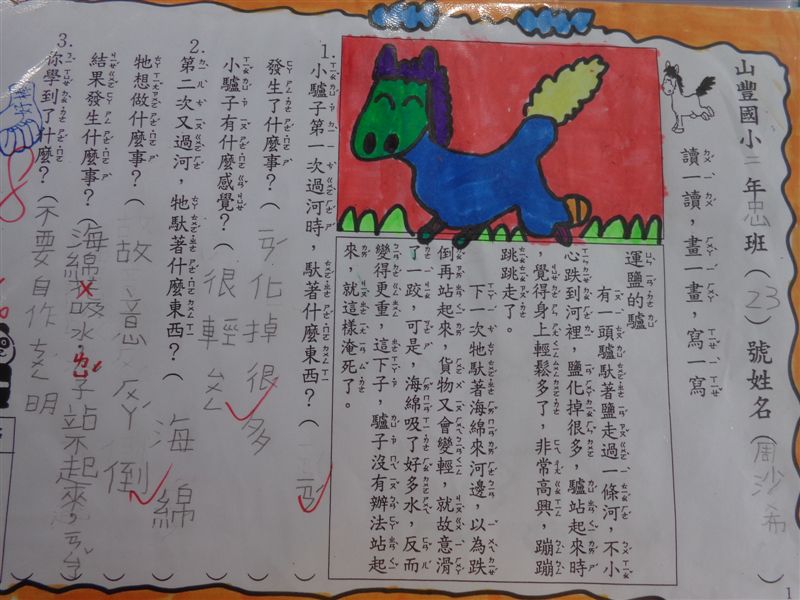 山豐國小二年忠班（23）號姓名（周沙希）
讀一讀，畫一畫，寫一寫
運鹽的驢
有一頭驢馱著鹽走過一條河，不小
心跌到河裡，鹽化掉很多，驢站起來時
，覺得身上輕鬆多了，非常高興，蹦蹦
跳跳走了。
下一次牠馱著海綿來河邊，以為跌
倒再站起來，貨物又會變輕，就故意滑
了一跤，可是，海綿吸了好多水，反而
變得更重，這下子，驢子沒有辦法站起
來，就這樣淹死了。
1. 小驢子第一次過河時，馱著什麼東西？（ ㄧㄢˊ ）
發生了什麼事？（ ㄧㄢˊ化掉很多 ）
小驢子有什麼感覺？（ 很輕ㄙㄨㄥ ）
2. 第二次又過河，牠馱著什麼東西？（ 海綿 ）
牠想做什麼事？（ 故意ㄉㄧㄝˊ倒 ）
結果發生什麼事？（海綿吸水，ㄌㄩˊ子站不起來，ㄙˇ了）
3. 你學到了什麼？（不要自作ㄘㄨㄥ明）
1